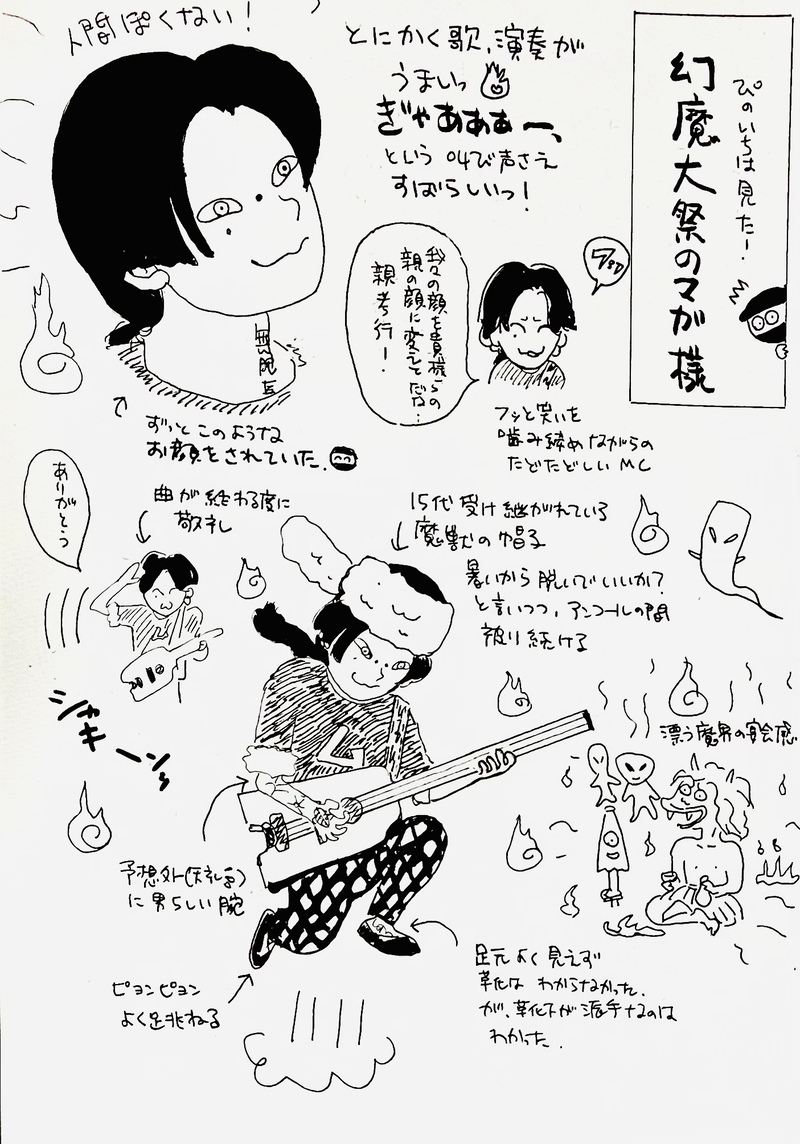 ぴのいちは見た!
幻魔大祭のマガ様
人間ぽくない!
とにかく歌、演奏が
うまいっ
ぎゃあああー、
という叫び声さえ
すばらしいっ!
我々の顔を貴様らの
親の顔に変えてだな…
親孝行!
フッ
フッと笑いを
噛み締めながらの
たどたどしいMC
ずっとこのような
お顔をされていた。
ありがとう
曲が終わる度に
敬礼
15代受け継がれている
魔獣の帽子
暑いから脱いでいいか?
と言いつつ、アンコールの間
被り続ける
シャキーン
漂う魔界の宴会感
予想外(失礼)
に男らしい腕
ピョンピョン
よく跳ねる
足元よく見えず
靴は わからなかった。
が、靴下が派手なのは
わかった。